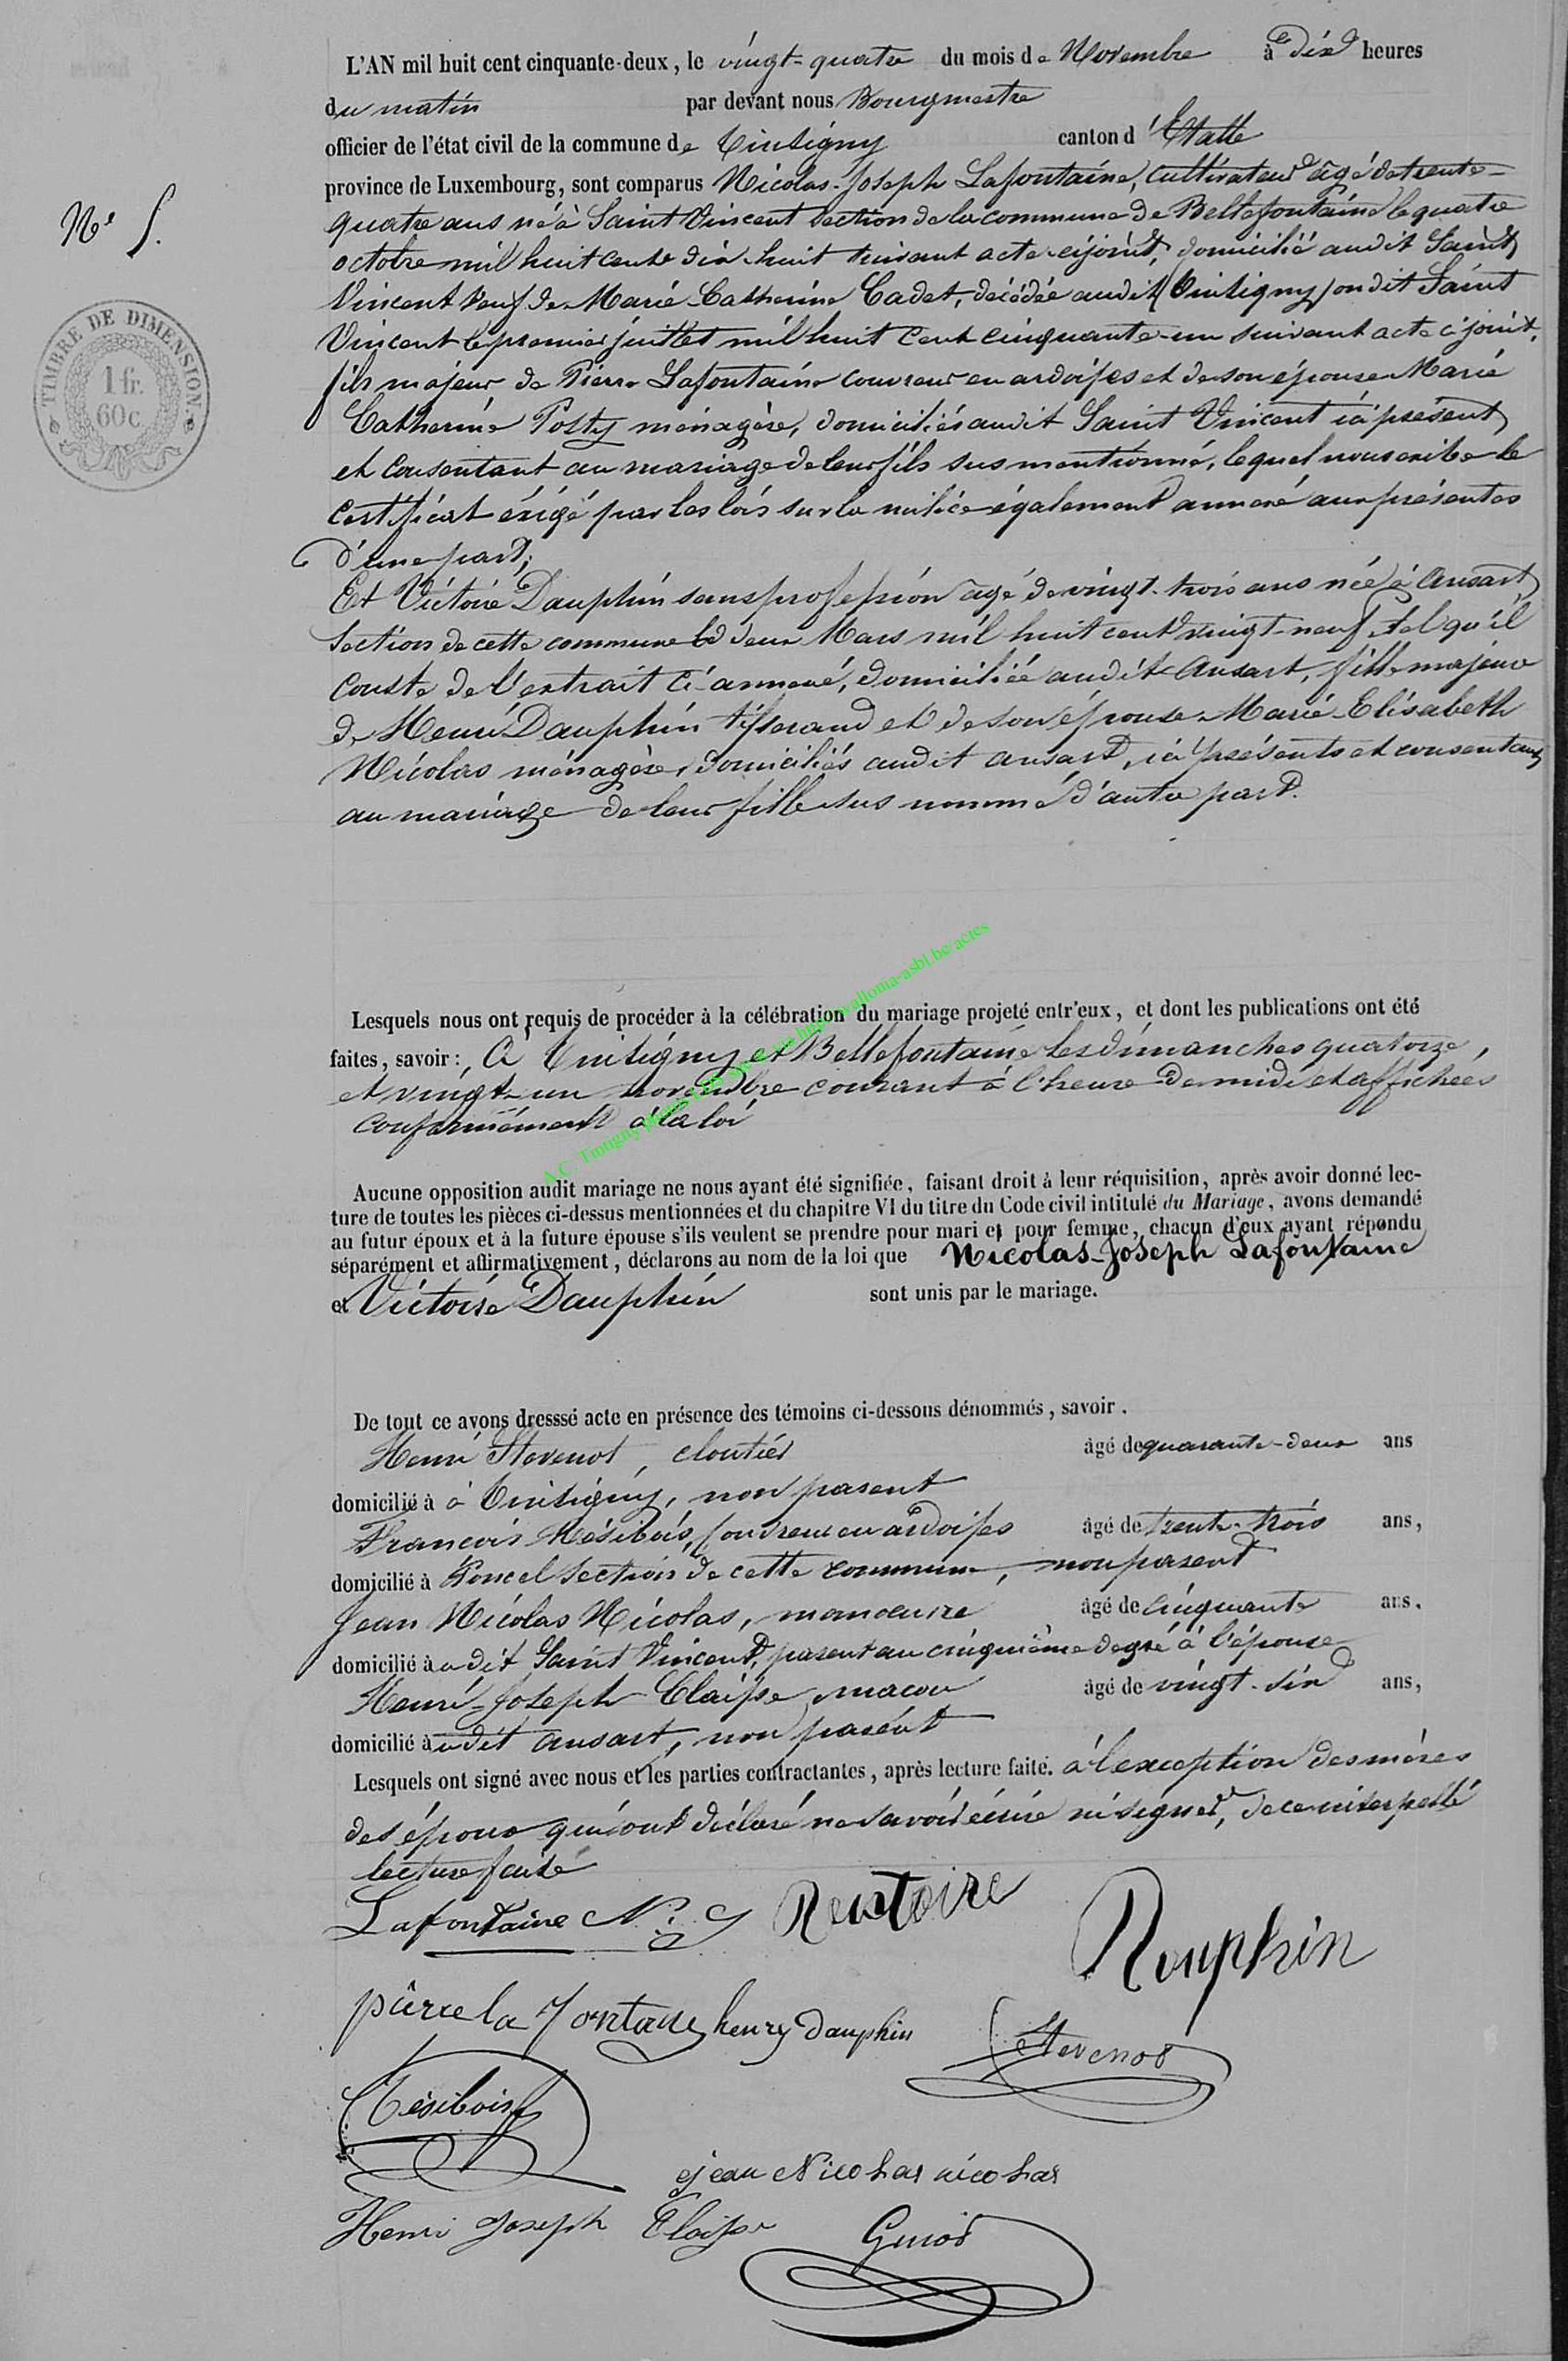 L'AN mil huit cent cinquante-deux, le vingt-quatre du mois de Novembre à dix heures
du matin par devant nous Bourgmestre
officier de l'état civil de la commune de Tintigny canton d'Etalle
province de Luxembourg, sont comparus Nicolas-Joseph Lafontaine, cultivateur âgé de trente-
Nº 5.
quatre ans né à Saint Vincent section de la commune de Bellefontaine le quatre
octobre mil huit cent dix-huit suivant acte ci joint, domicilié audit Saint
Vincent veuf de Marie-Catherine Cadet, décédée audit (Tintigny) ondit Saint
Vincent le premier juillet mil huit cent cinquante-un suivant acte ci joint,
TIMBRE DE DIMENSION.
1 fr.
60c
fils majeur de Pierre Lafontaine couvreur en ardoises et de son épouse Marie
Catherine Posty ménagère, domiciliés audit Saint Vincent ici présent
et consentant au mariage de leur fils sus mentionné, lequel nous exibe le
certificat éxigé par les lois sur la milice également annexé aux présentes
d'une part;
Et Victoire Dauphin sans profession âgé de vingt-trois ans née à Ansart
section de cette commune le deux Mars mil huit cent vingt-neuf, tel qu'il
conste de l'extrait ci-annexé, domiciliée audit Ansart, fille majeure
de Henri Dauphin tisserand et de son épouse Marie-Elisabeth
Nicolas ménagère, domiciliés audit ansart, ici présents et consentans
au mariage de leur fille sus nommé d'autre part.
Lesquels nous ont requis de procéder à la célébration du mariage projeté entr'eux, et dont les publications ont été
faites, savoir: A Tintigny et Bellefontaine les dimanches quatorze,
et vingt-un novembre courant à l'heure de midi et affichées
conformément à la loi
Aucune opposition audit mariage ne nous ayant été signifiée, faisant droit à leur réquisition, après avoir donné lec-
ture de toutes les pièces ci-dessus mentionnées et du chapitre VI du titre du Code civil intitulé du Mariage, avons demandé
au futur époux et à la future épouse s'ils veulent se prendre pour mari et pour femme, chacun d'eux ayant répondu
séparément et affirmativement, déclarons au nom de la loi que Nicolas-Joseph Lafontaine
et Victoire Dauphin sont unis par le mariage.
De tout ce avons dresssé acte en présence des témoins ci-dessous dénommés, savoir.
Henri Stevenot, cloutier âgé de quarante-deux ans
domicilié à à Tintigny, non parent
François Résibois, couvreur en ardoises âgé de trente-trois ans,
domicilié à Poncel section de cette commune, non parent
Jean Nicolas Nicolas, manoeuvre âgé de cinquante ans.
domicilié à udit Saint Vincent, parent au cinquième degré à l'épouse
Henri-Joseph Claisse maçon âgé de vingt-six ans,
domicilié à udit ansart, non parent
Lesquels ont signé avec nous et les parties contractantes, après lecture faite. à l'exception des mères
des époux qui ont déclaré ne savoir écrire ni signer, de ce interpellé
lecture faite
Lafontaine N. J Dewtoire Douphin
pierre la fontane henry dauphin Stevenot
Résibois
jean Nicolas nicolas
Henri Joseph Claisse Guiot